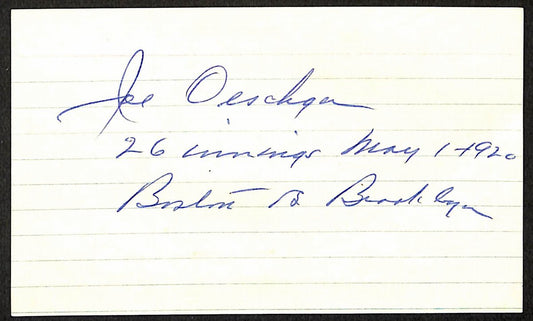 Joe Oeschger
26 innings May 1-1920
Boston & Brooklyn